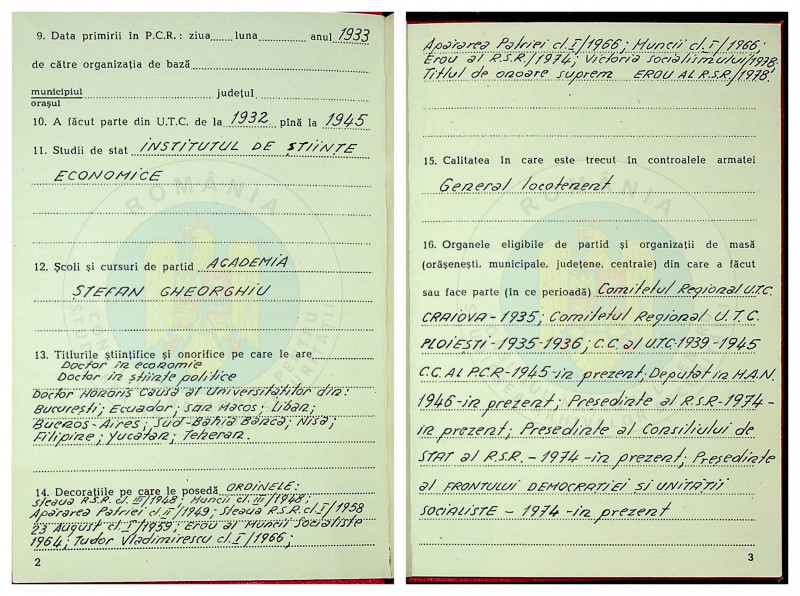 9. Data primirii în P.C.R.: ziua..... luna.......... anul 1933
de către organizația de bază
municipiul județul
orașul
10. A făcut parte din U.T.C. de la 1932 pînă la 1945
11. Studii de stat INSTITUTUL DE ȘTIINȚE
ECONOMICE
12. Școli și cursuri de partid ACADEMIA
ȘTEFAN GHEORGHIU
13. Titlurile științifice și onorifice pe care le are
Doctor în economie
Doctor în științe politice
Doctor Honoris Causa al Universităților din:
București; Ecuador; San Macos; Liban;
Buenos-Aires; Sud-Bahia Banca; Nisa;
Filipine; Yucatan; Teheran.
14. Decorațiile pe care le posedă ORDINELE:
Steaua R.S.R. cl. III/1948; Muncii cl. III/1948;
Apărarea Patriei cl. II/1949; Steaua R.S.R. cl. I/1958
23 August cl. I/1959; Erou al Muncii Socialiste
1964; Tudor Vladimirescu cl. I/1966;
2
Apărarea Patriei cl. I/1966; Muncii cl. I/1966;
Erou al R.S.R./1974; Victoria Socialismului/1978;
Titlul de onoare suprem EROU AL R.S.R./1978.
15. Calitatea în care este trecut în controalele armatei
General locotenent
16. Organele eligibile de partid și organizații de masă
(orășenești, municipale, județene, centrale) din care a făcut
sau face parte (în ce perioadă) Comitetul Regional U.T.C.
CRAIOVA - 1935; Comitetul Regional U.T.C.
PLOIEȘTI - 1935-1936; C.C. al U.T.C-1939-1945
C.C. AL P.C.R-1945-în prezent; Deputat în M.A.N.
1946-în prezent; Președinte al R.S.R-1974-
în prezent; Președinte al Consiliului de
STAT al R.S.R. - 1974-în prezent; Președinte
al FRONTULUI DEMOCRAȚIEI ȘI UNITĂȚII
SOCIALISTE - 1974-în prezent
3
ROMÂNIA
ROMÂNIA